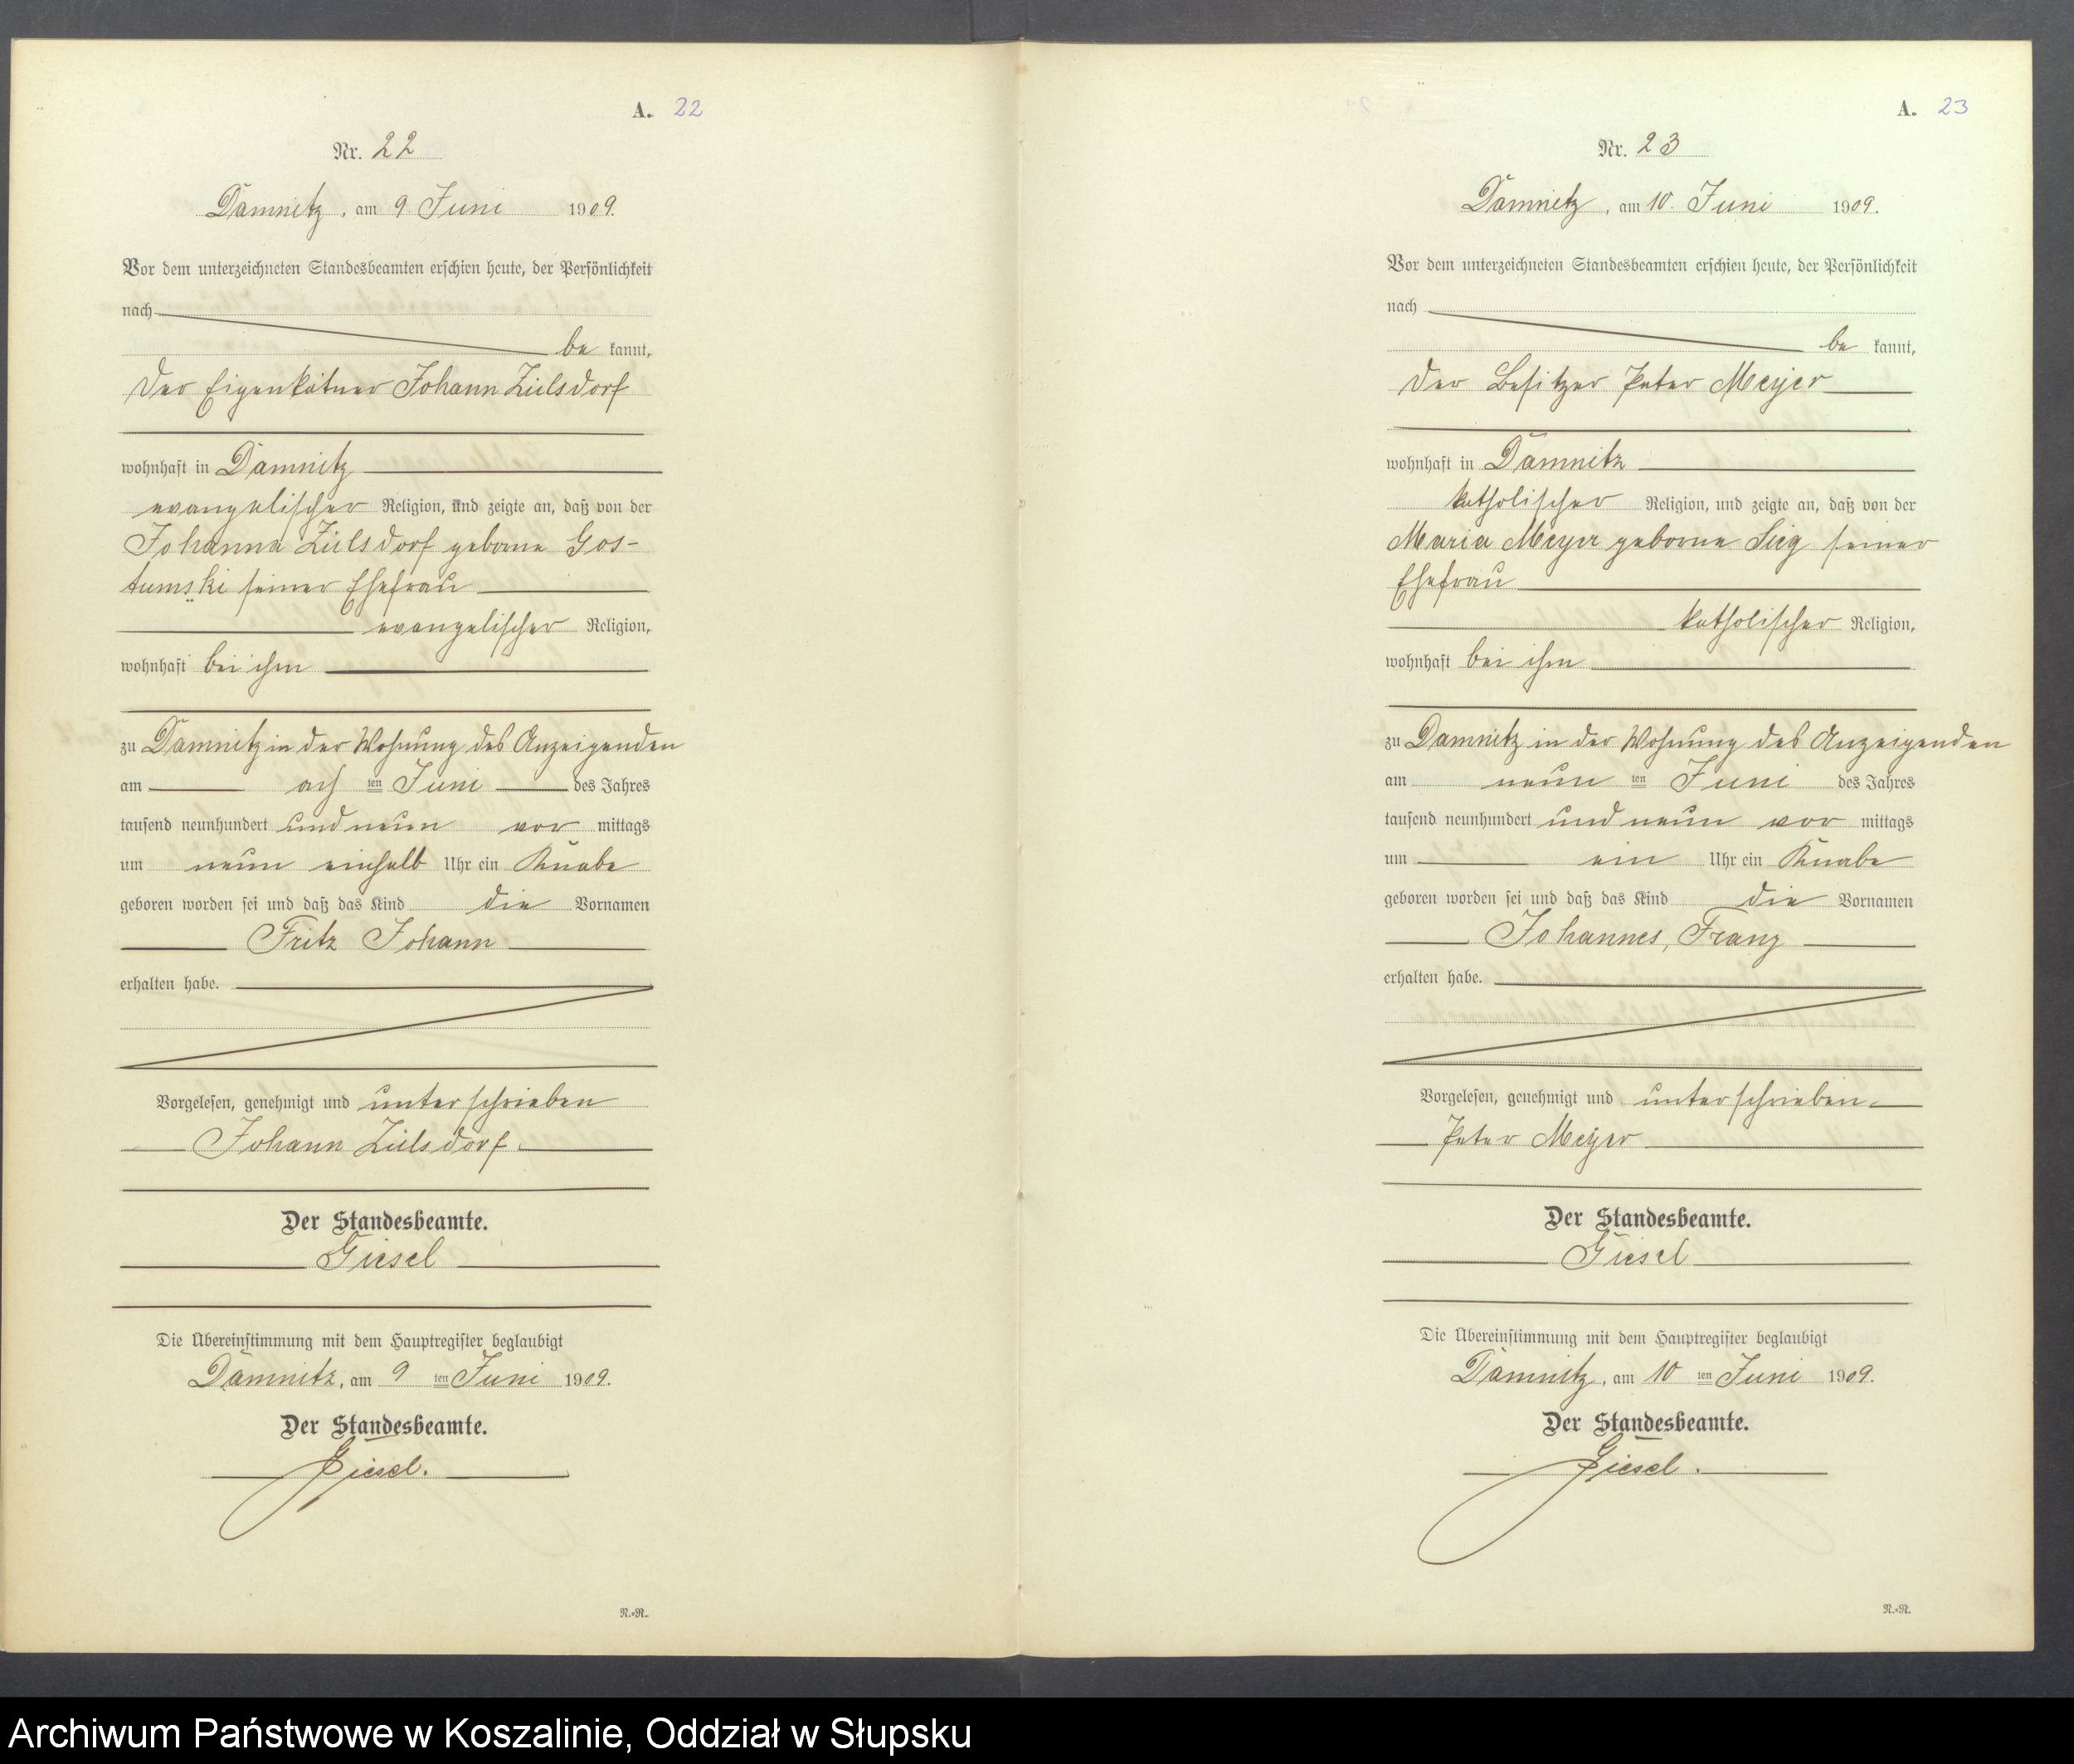 A. 22
Nr. 22
Damnitz, am 9 Juni 1909.
Vor dem unterzeichneten Standesbeamten erschien heute, der Persönlichkeit
nach
be kannt,
der Eigenkätner Johann Zülsdorf
wohnhaft in Damnitz
evangelischer Religion, und zeigte an, daß von der
Johanna Zülsdorf geborne Gos-
tumski seiner Ehefrau
evangelischer Religion,
wohnhaft bei ihm
zu Damnitz in der Wohnung des Anzeigenden
am ach ten Juni des Jahres
tausend neunhundert und neun vor mittags
um neun einhalb Uhr ein Knabe
geboren worden sei und daß das Kind die Vornamen
Fritz Johann
erhalten habe.
Vorgelesen, genehmigt und unterschrieben
Johann Zülsdorf.
Der Standesbeamte.
Giesel
Die Übereinstimmung mit dem Hauptregister beglaubigt
Damnitz, am 9 ten Juni 1909.
Der Standesbeamte.
Giesel.
N.=R.
A. 23
Nr. 23
Damnitz, am 10. Juni 1909.
Vor dem unterzeichneten Standesbeamten erschien heute, der Persönlichkeit
nach
be kannt,
der Besitzer Peter Meyer
wohnhaft in Damnitz
katholischer Religion, und zeigte an, daß von der
Maria Meyer geborne Sieg seiner
Ehefrau
katholischer Religion,
wohnhaft bei ihm
zu Damnitz in der Wohnung des Anzeigenden
am neun ten Juni des Jahres
tausend neunhundert und neun vor mittags
um ein Uhr ein Knabe
geboren worden sei und daß das Kind die Vornamen
Johannes, Franz
erhalten habe.
Vorgelesen, genehmigt und unterschrieben.
Peter Meyer
Der Standesbeamte.
Giesel
Die Übereinstimmung mit dem Hauptregister beglaubigt
Damnitz, am 10 ten Juni 1909.
Der Standesbeamte.
Giesel.
N.=R.
Archiwum Państwowe w Koszalinie, Oddział w Słupsku